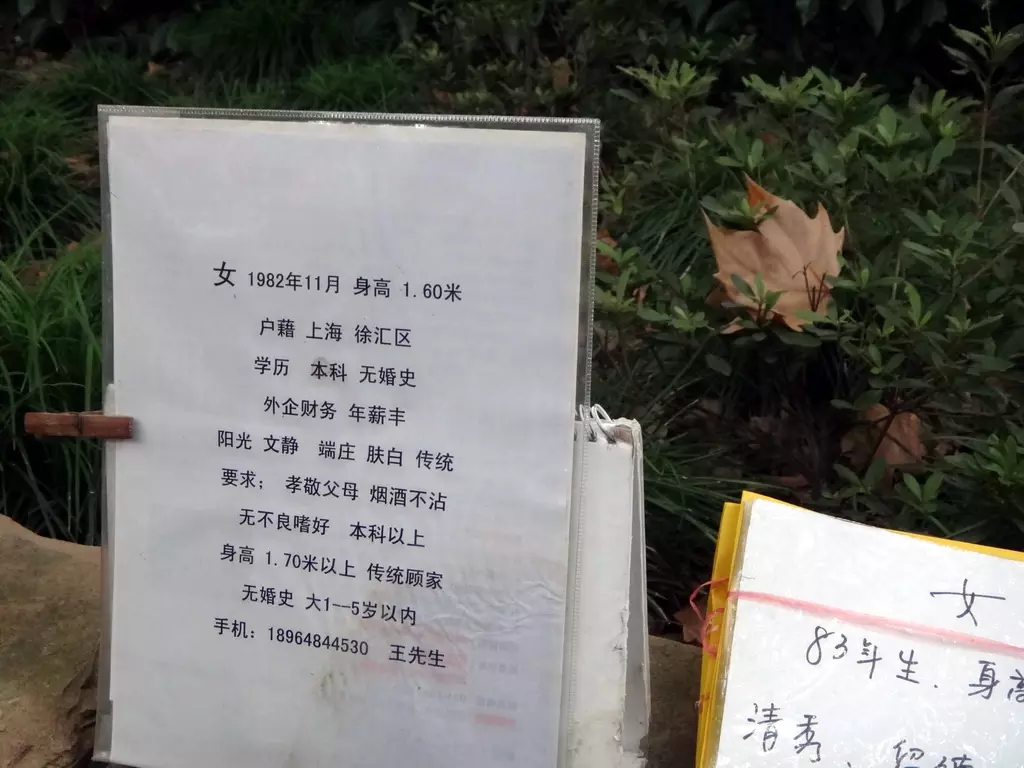 女 1982年11月 身高 1.60米
户藉 上海 徐汇区
学历 本科 无婚史
外企财务 年薪丰
阳光 文静 端庄 肤白 传统
要求； 孝敬父母 烟酒不沾
无不良嗜好 本科以上
身高 1.70米以上 传统顾家
无婚史 大1--5岁以内
手机：18964844530 王先生
女
83年生. 身高
清秀、